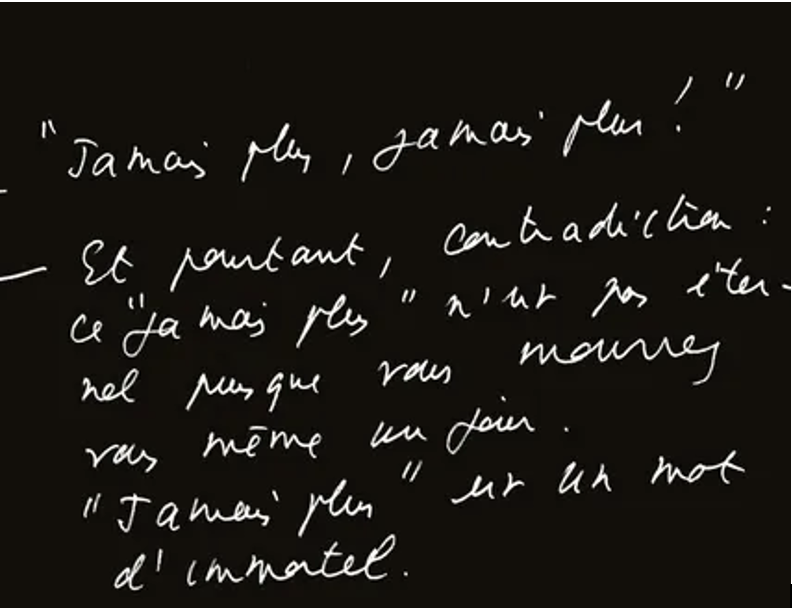 "Jamais plus, jamais plus !"
Et pourtant, contradiction :
ce "jamais plus" n'est pas éter-
nel puisque vous mourrez
vous même un jour.
"Jamais plus" est un mot
d'immortel.